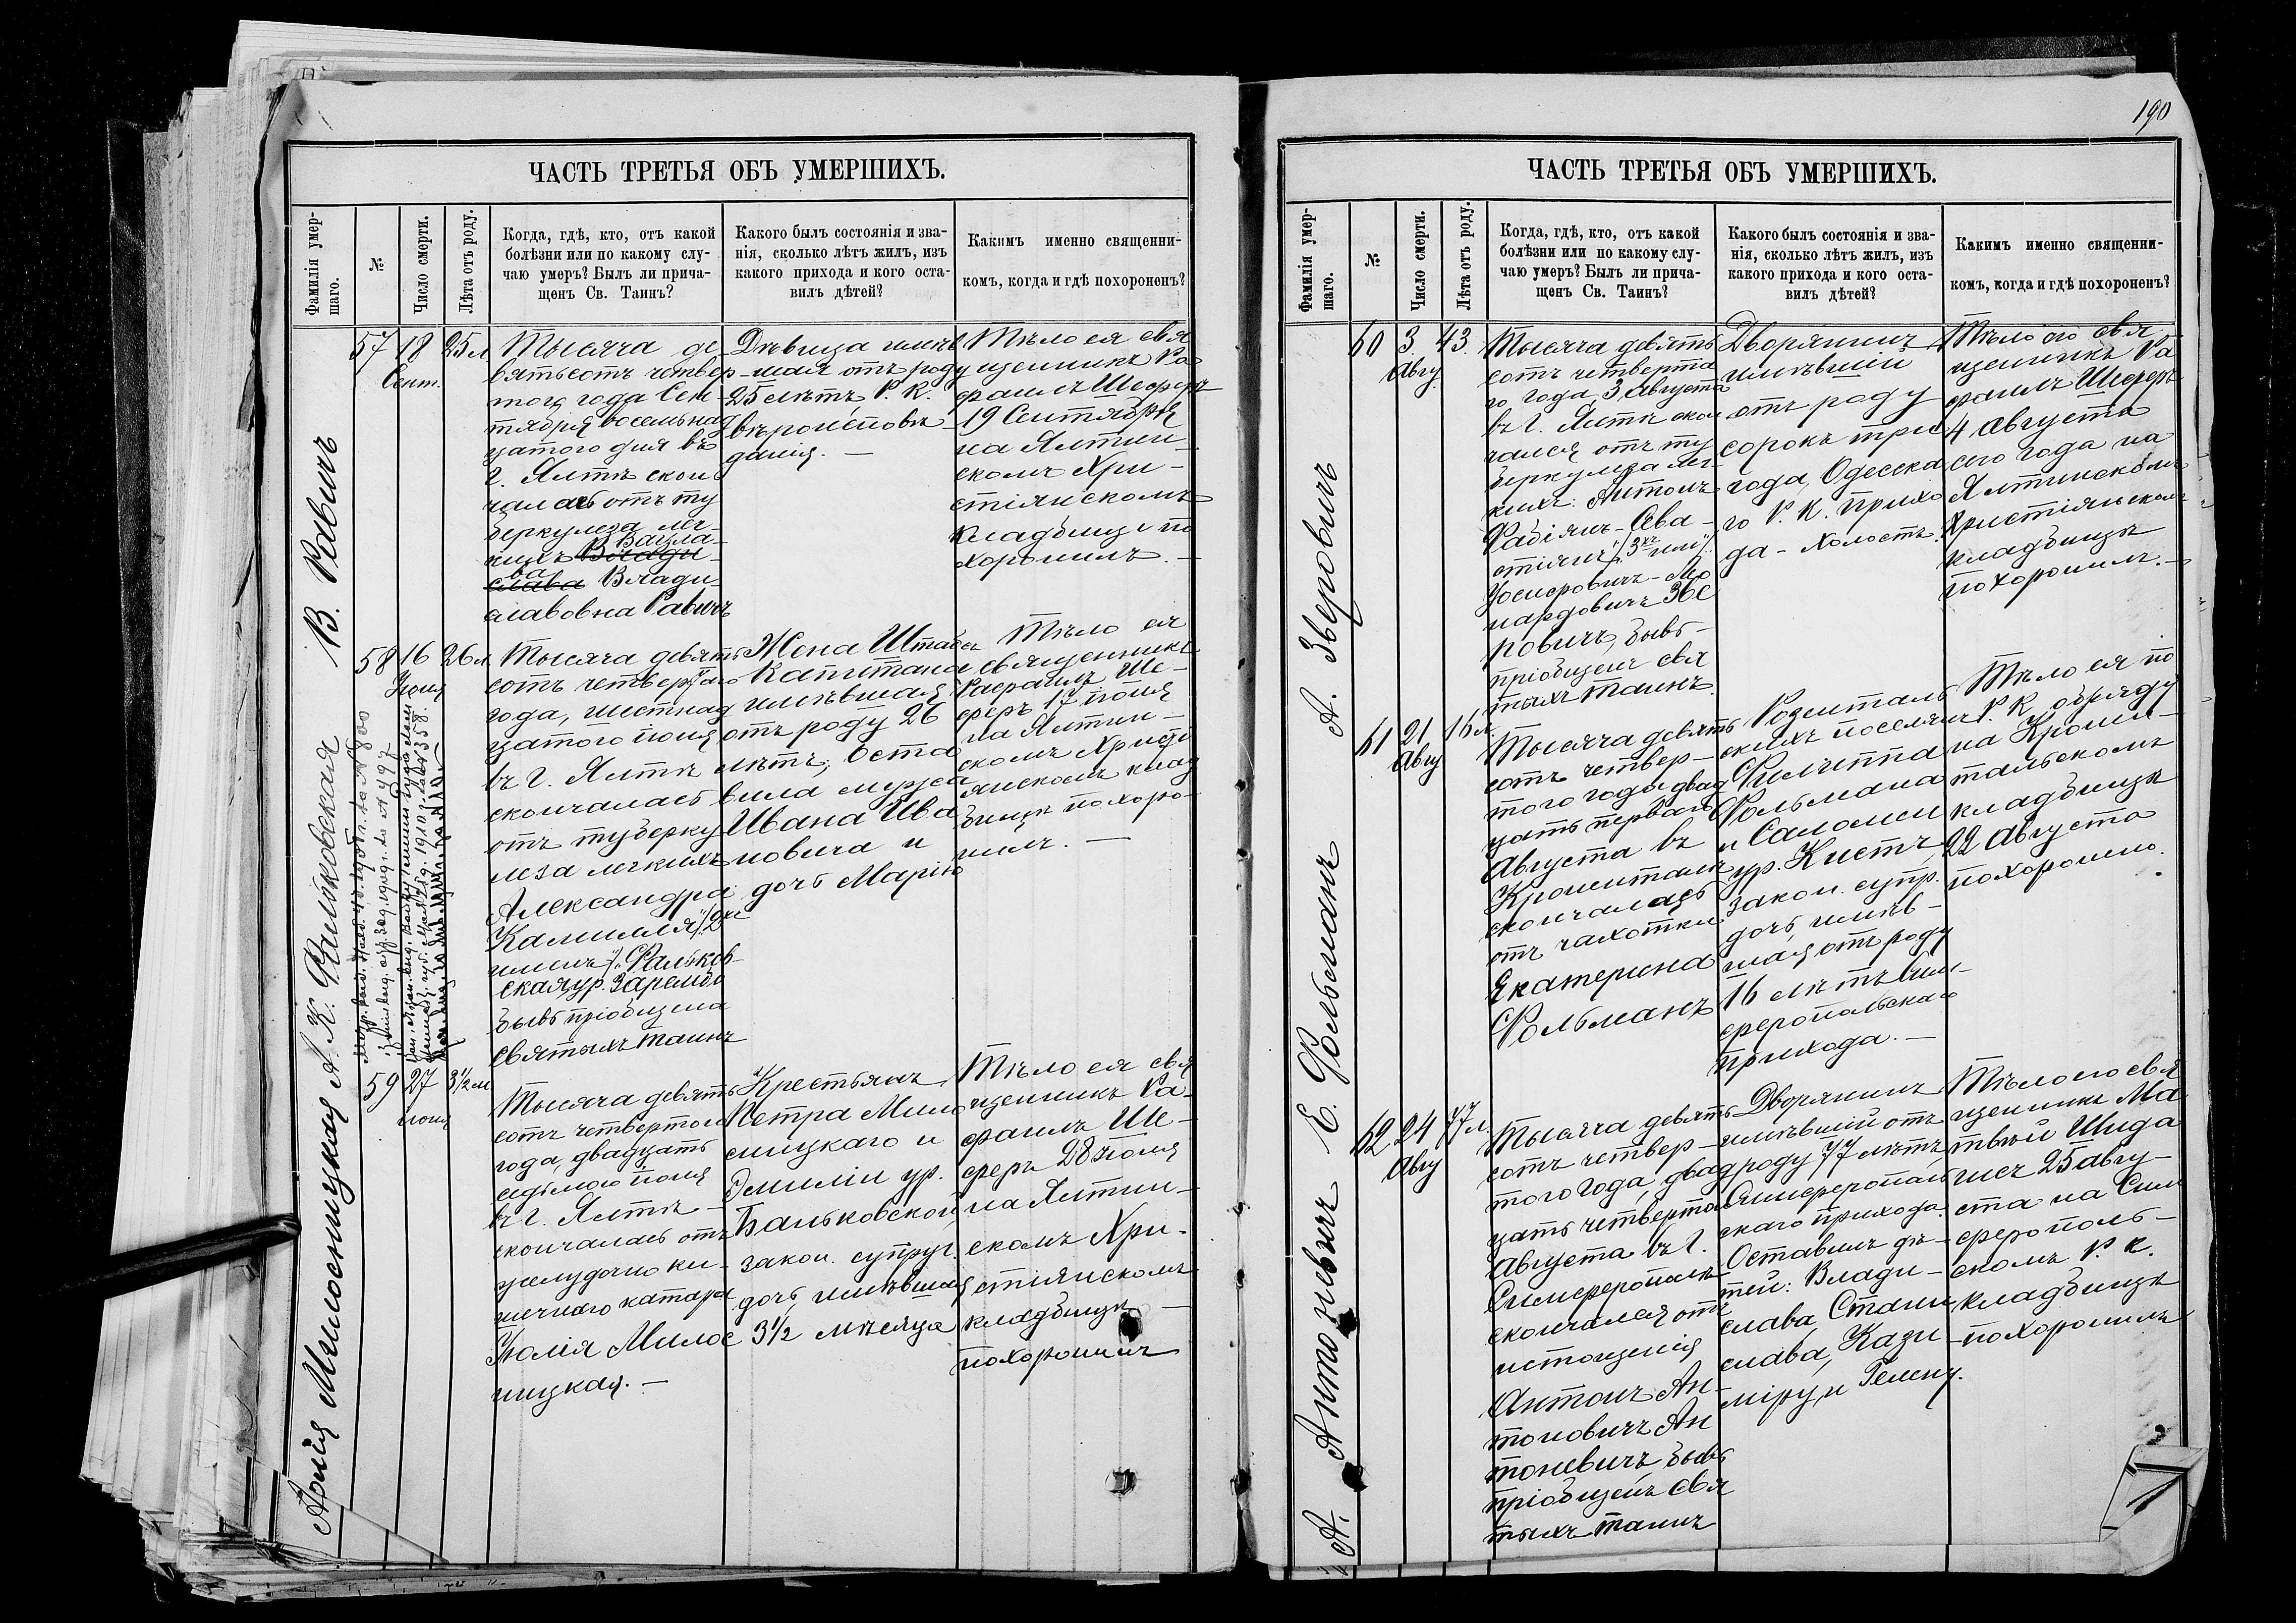 190
ЧАСТЬ ТРЕТЬЯ ОБЪ УМЕРШИХЪ.
Фамилія умер-
шаго.
№
Число смерти.
Лѣта отъ роду.
Когда, гдѣ, кто, отъ какой
болѣзни или по какому слу-
чаю умеръ? Былъ ли прича-
щенъ Св. Таинъ?
Какого былъ состоянія и зва-
нія, сколько лѣтъ жилъ, изъ
какого прихода и кого оста-
вилъ дѣтей?
Какимъ именно священни-
комъ, когда и гдѣ похороненъ?
В. Равичъ
57
18
Сент.
25 л
Тысяча де-
вятьсотъ четвер-
того года Сен-
тября восемьнад
цатого дня въ
г. Ялтѣ скон
чалась отъ ту
беркулеза лег-
кихъ
Вацла-
ва Влади
славовна Равичъ
Дѣвица имѣв
шая отъ роду
25 лѣтъ, Р. К.
вѣроисповѣ
данія. —
Тѣло ея свя
щенникъ Ра
фаилъ Шеферъ
19 Сентября
на Ялтин
скомъ Хри-
стіянскомъ
кладбищѣ по
хоронилъ. —
А. К. Фальковская
58
16
Іюня
26 л.
Тысяча девять
сотъ четвертаго
года, шестнад
цатого іюня
въ г. Ялтѣ
скончалась
отъ туберку
леза легкихъ
Александра
Камилля /2хъ
именъ/ Фальков-
ская ур. Заремба
бывъ пріобщена
святыхъ таинъ
Жена Штабсъ
Капитана
имѣвшая
отъ роду 26
лѣтъ, оста
вила мужа
Ивана Ива
новича и
дочь Марію
Тѣло ея
священникъ
Рафаилъ Ше-
феръ 17 іюня
на Ялтин-
скомъ Христі
янскомъ клад
бищѣ похоро-
нилъ. —
Юлія Милосницкая
59
27
іюня
3½ м
Тысяча девять
сотъ четвертого
года, двадцать
седьмого іюня
въ г. Ялтѣ
скончалась отъ
желудочно ки-
шечнаго катара
Юлія Милос
ницкая. —
Крестьянъ
Петра Мило
сницкаго и
Эмиліи ур.
Баньковской
закон. супруг.
дочь, имѣвшая
3½ мѣсяца
Тѣло ея свя
щенникъ Ра-
фаилъ Ше-
феръ 28 іюня
на Ялтин-
скомъ Хри-
стіянскомъ
кладбищѣ —
похоронилъ
ЧАСТЬ ТРЕТЬЯ ОБЪ УМЕРШИХЪ.
Фамилія умер-
шаго.
№
Число смерти.
Лѣта отъ роду.
Когда, гдѣ, кто, отъ какой
болѣзни или по какому слу-
чаю умеръ? Былъ ли прича-
щенъ Св. Таинъ?
Какого былъ состоянія и зва-
нія, сколько лѣтъ жилъ, изъ
какого прихода и кого оста-
вилъ дѣтей?
Какимъ именно священни-
комъ, когда и гдѣ похороненъ?
А. Зверовичъ
60
3.
Авгу
43.
Тысяча девять
сотъ четверта
го года, 3 Августа
въ г. Ялтѣ скон
чался отъ ту
беркулеза лег-
кихъ: Антонъ
Фабіянъ-Сева-
стіянъ /3хъ имен/
Іосифовичъ-Ле
нардовичъ Зве
ровичъ, бывъ
пріобщенъ свя
тыхъ таинъ.
Дворянинъ
имѣвшій
отъ роду
сорокъ три
года, Одесска
го Р. К. прихо
да - холостъ.
Тѣло его свя
щенникъ Ра
фаилъ Шеферъ
4 Августа
сего года на
Ялтинскомъ
Христіянскомъ
кладбищѣ
похоронилъ. —
Е. Фольманъ
61
21
Авгу
16 л.
Тысяча девять
сотъ четвер-
того года двад
цать первого
Августа въ
Кроненталѣ
скончалась
отъ чахотки
Екатерина
Фольманъ
Розенталь
скихъ поселянъ
Филиппа
Фольмана
и Саломеи
ур. Кистъ,
закон. супр.
дочь, имѣв-
шая отъ роду
16 лѣтъ Сим-
феропольскаго
прихода. —
Тѣло ея по
Р. К. обряду
на Кронен-
тальскомъ
кладбищѣ
22 Августа
похоронено.
А. Антоневичъ
62
24
Авгу
77 л.
Тысяча девять
сотъ четвер-
того года, двад
цать четвертаго
Августа въ г.
Симферополѣ
скончался отъ
истощенія
Антонъ Ан-
тоновичъ Ан
тоневичъ бывъ
пріобщенъ свя
тыхъ таинъ
Дворянинъ
имѣвшій отъ
роду 77 лѣтъ
Симферополь
скаго прихода.
Оставилъ дѣ-
тей: Влади-
слава, Стани
слава, Кази
міру, и Гелену.
Тѣло его свя
щенникъ Ма
твѣй Шида
гисъ 25 авгу-
ста на Сим
ферополь-
скомъ Р. К.
кладбищѣ
похоронилъ